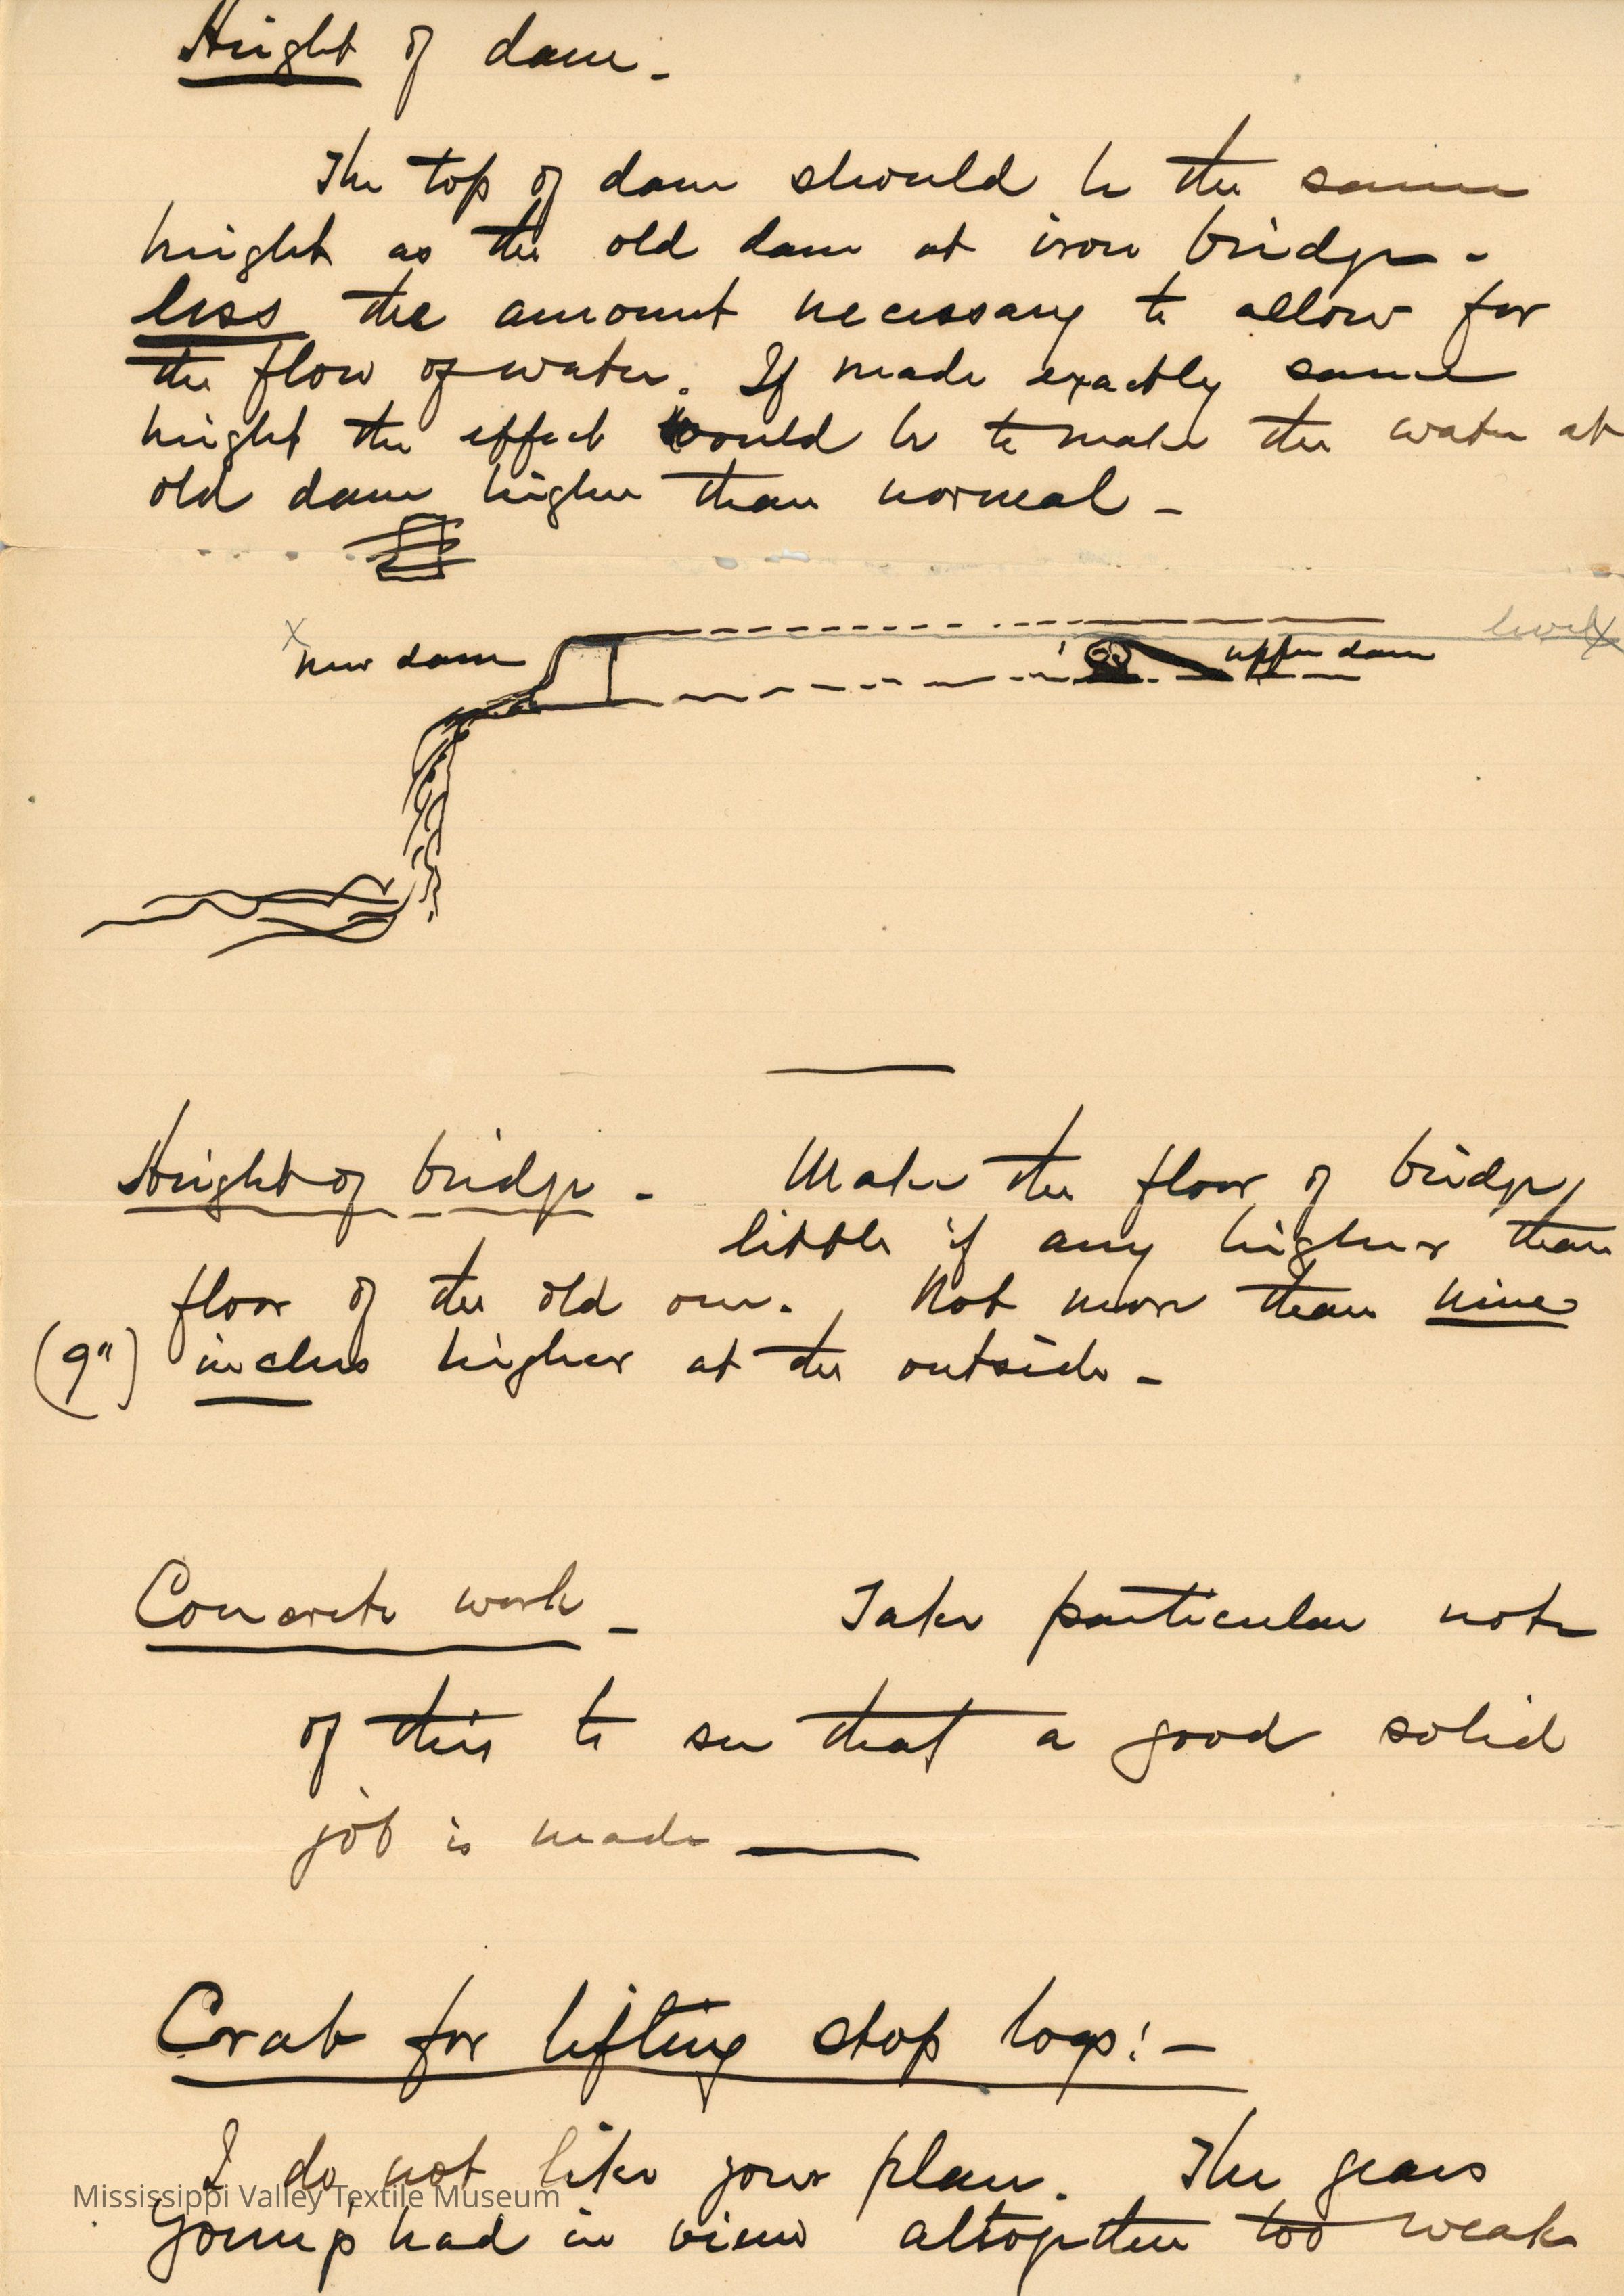 Height of dam -
The top of dam should be the same
height as the old dam at iron bridge -
less the amount necessary to allow for
the flow of water. If made exactly same
height the effect would be to make the water at
old dam higher than normal -
x level x
new dam upper dam
Height of bridge - Make the floor of bridge,
little if any higher than
floor of the old one. Not more than nine
(9") inches higher at the outside -
Concrete work - Take particular note
of this to see that a good solid
job is made —
Crab for lifting stop logs: -
I do not like your plan. The gears
Mississippi Valley Textile Museum
had in view altogether too weak